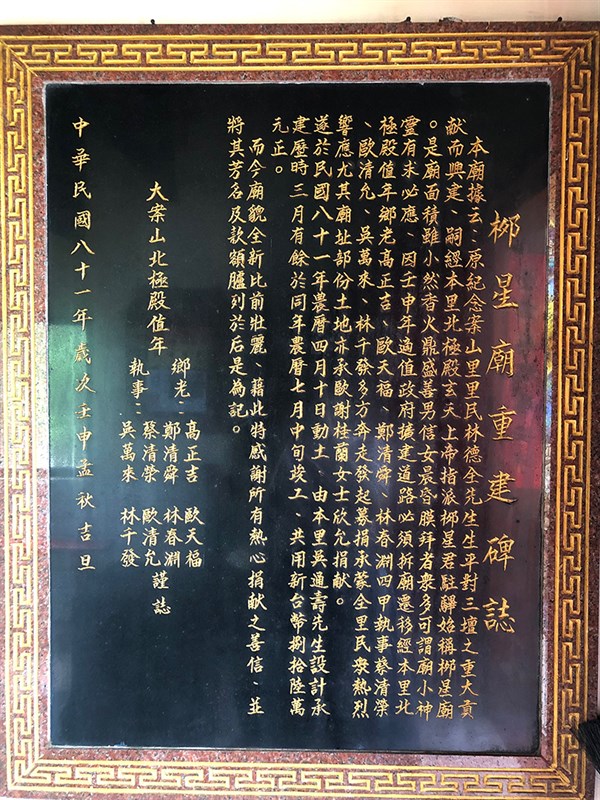 梛星廟重建碑誌
本廟據云：原紀念案山里里民林德全先生生平對三壇之重大貢
献而興建、嗣經本里北極殿玄天上帝指派梛星君駐驛始稱梛星廟
。是廟面積雖小然香火鼎盛善男信女晨昏膜拜者衆多可謂廟小神
靈有求必應、因壬申年適值政府擴建道路必須拆廟遷移經本里北
極殿值年鄉老高正吉、歐天福、鄭清舜、林春淵四甲執事蔡清榮
、歐清允、吳萬來、林千發多方奔走發起募捐承蒙全里民衆熱烈
響應尤其廟址部份土地亦承歐謝桂蘭女士欣允捐献。
遂於民國八十一年農曆四月十日動土、由本里吳通壽先生設計承
建歷時三月有餘於同年農曆七月中旬竣工、共用新台幣捌拾陸萬
元正。
而今廟貌全新比前壯麗、藉此特感謝所有熱心捐献之善信、並
將其芳名及款額臚列於后是為記。
大案山北極殿值年
鄉老：高正吉 歐天福
鄭清舜 林春淵
執事：蔡清榮 歐清允 謹誌
吳萬來 林千發
中華民國八十一年歲次壬申孟秋吉旦